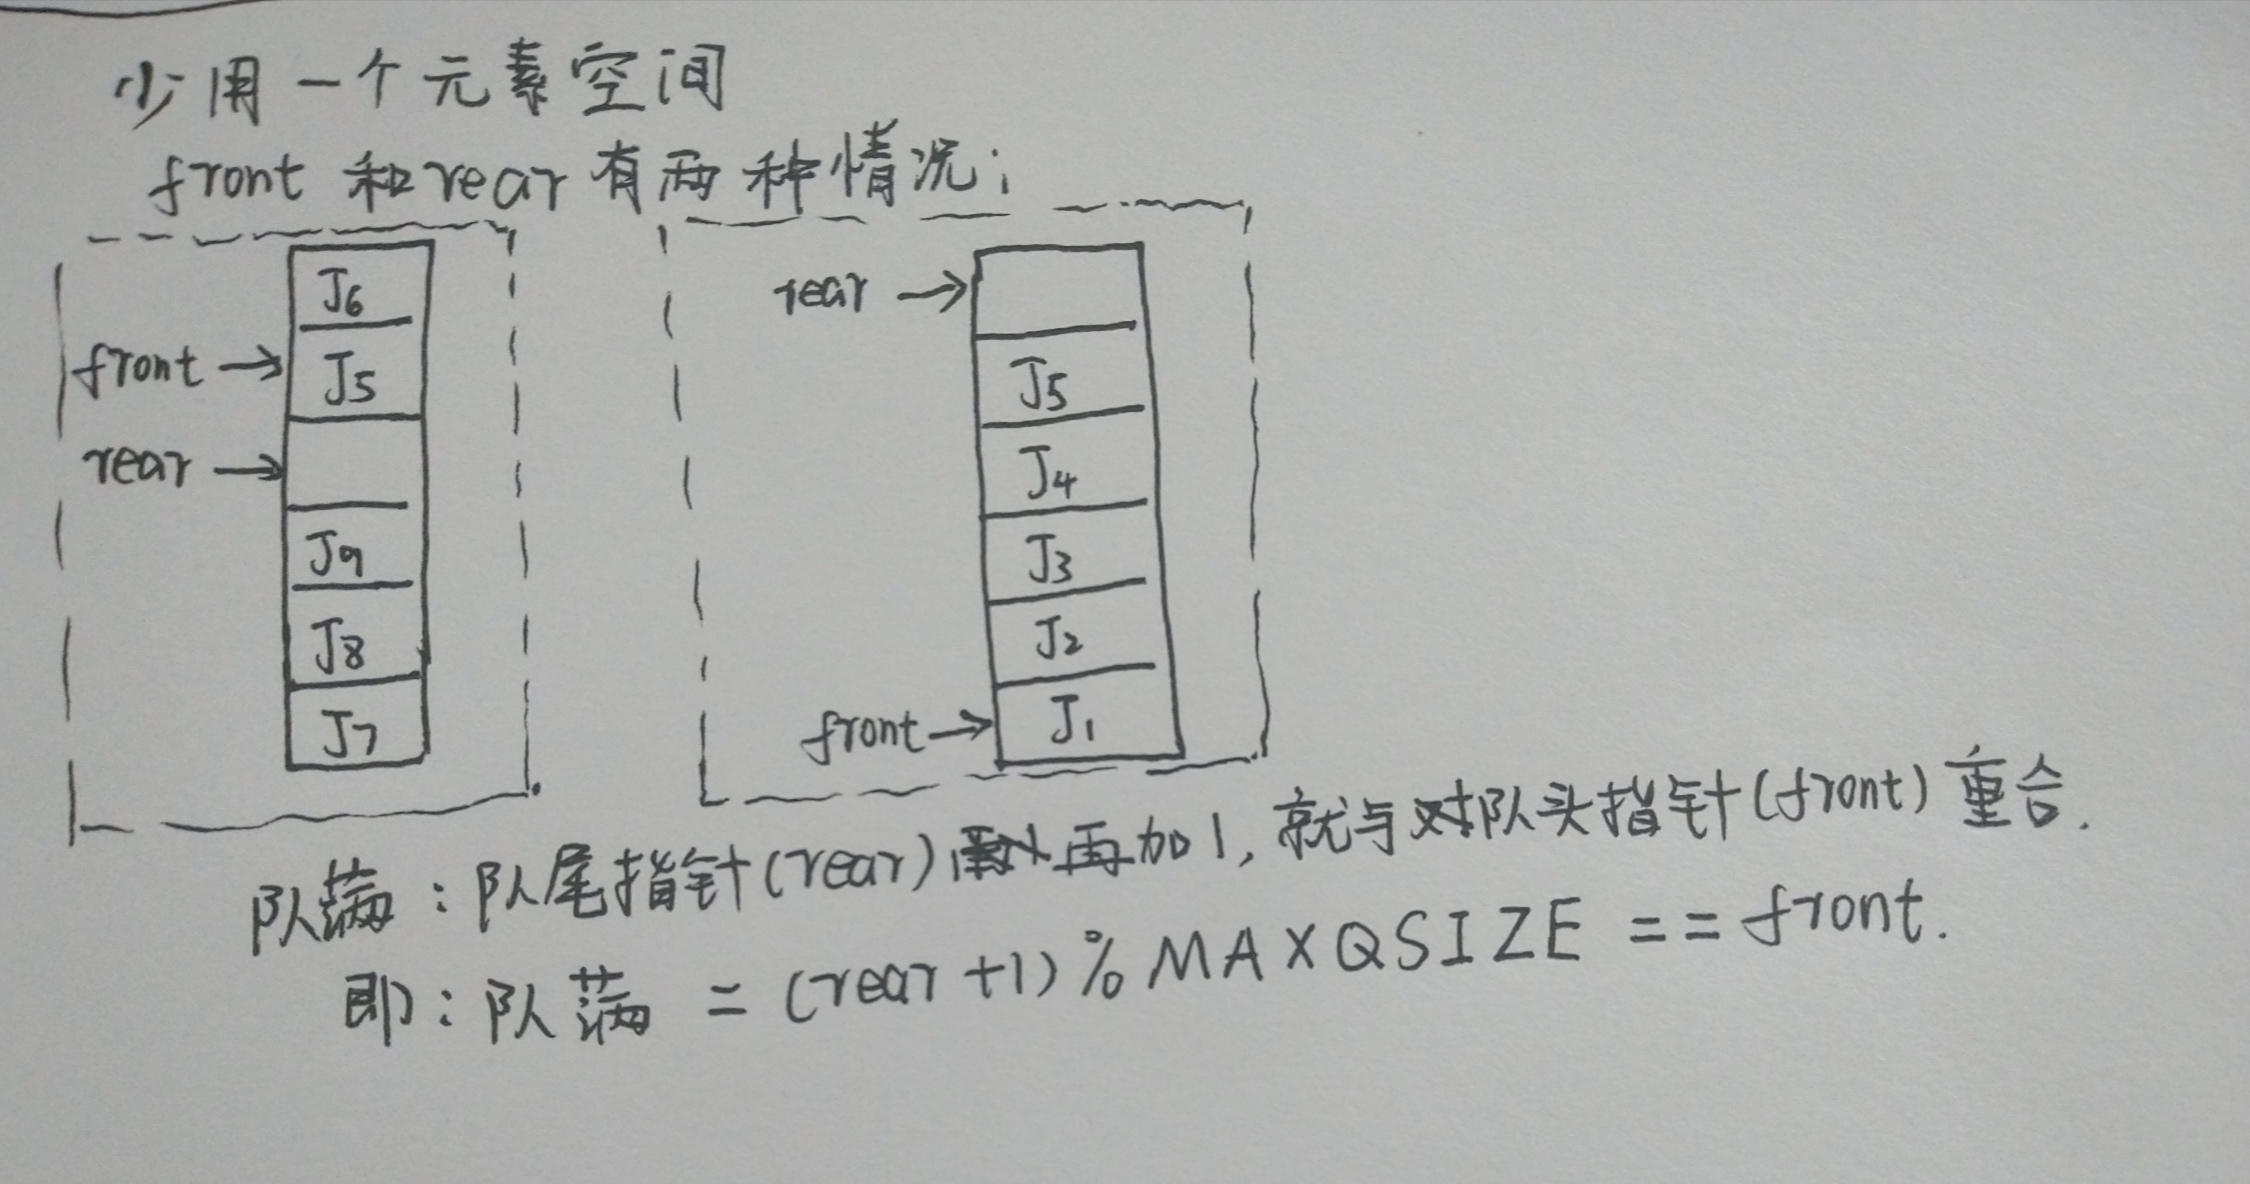 少用一个元素空间
front 和rear有两种情况:
J6
front → J5
rear →
J9
J8
J7
rear →
J5
J4
J3
J2
front → J1
队满:队尾指针(rear)再加1,就与对队头指针(front)重合.
即:队满 = (rear+1)%MAXQSIZE == front.